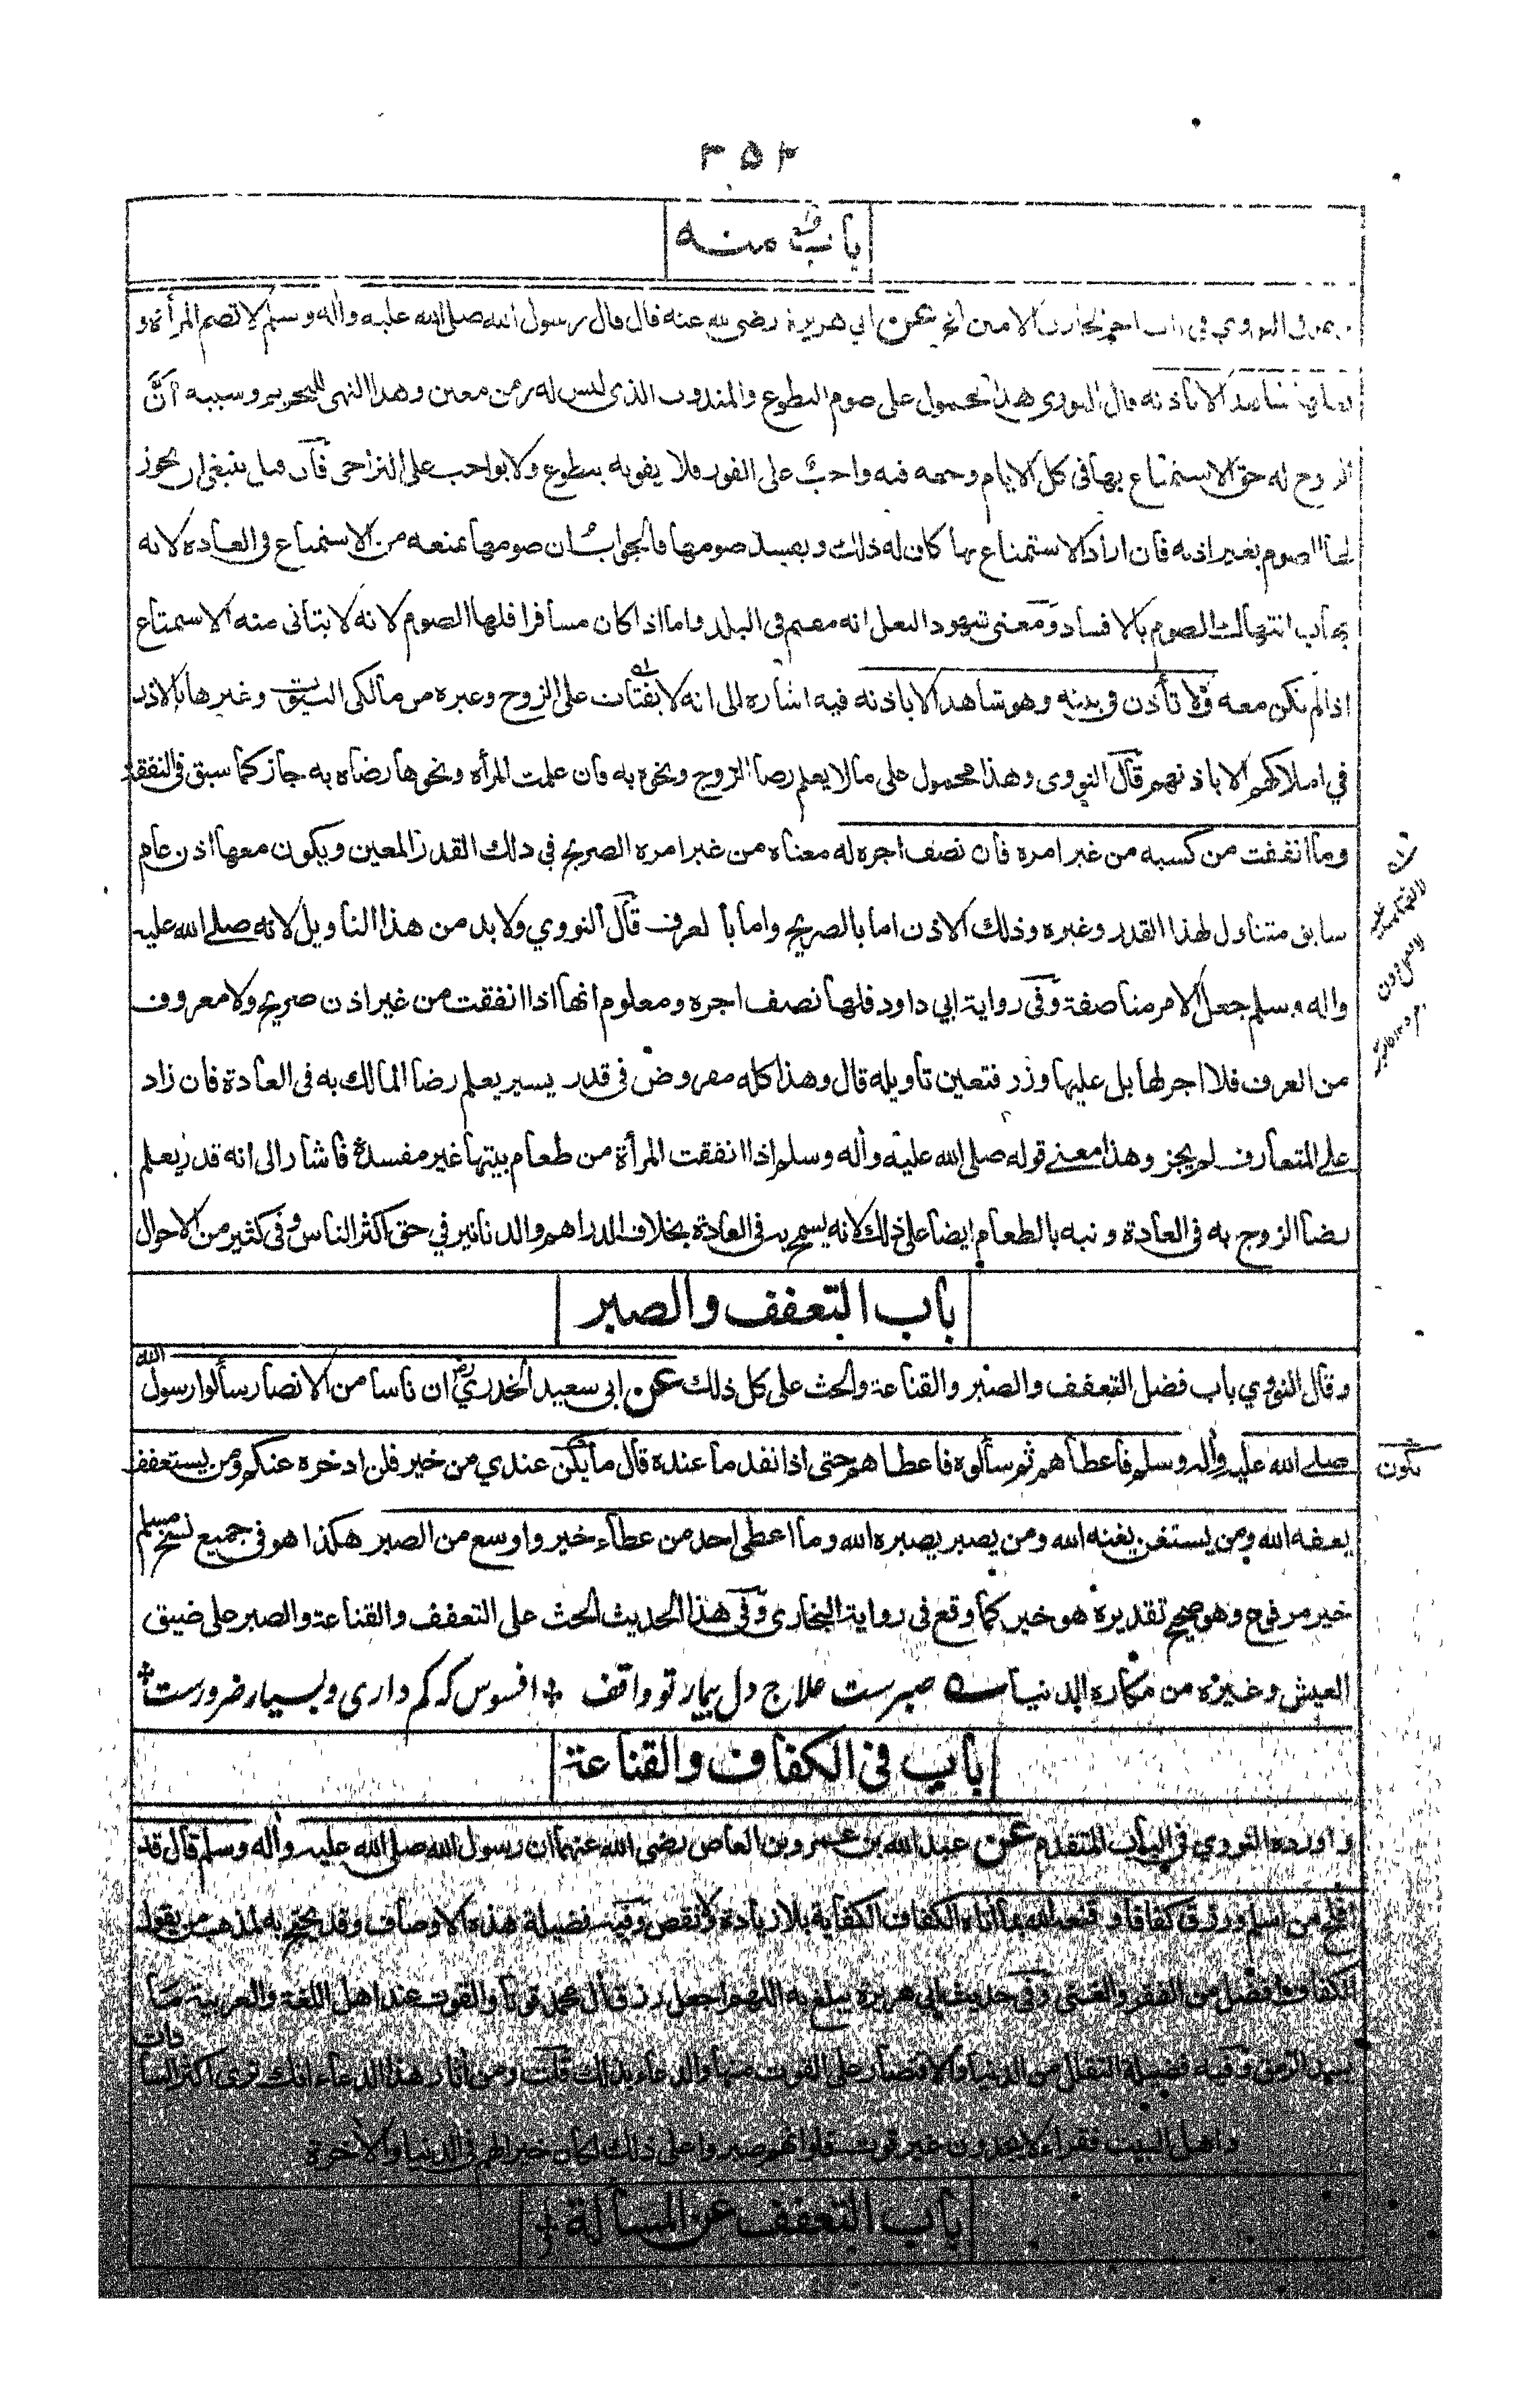 ۳۵۲
باب منه
النووي في باب اجر الخازن الامين الخ عن ابي هريرة رضي الله عنه قال قال رسول الله صلى الله عليه واله وسلم لا تصم المرأة و
بعلها شاهد الا باذنه قال النووي هذا محمول على صوم التطوع والمندوب الذي ليس له زمن معين وهذا النهي للتحريم وسببه أنَّ
الزوج له حق الاستمتاع بها في كل الايام وحقه فيه واجب على الفور فلا يفوته بتطوع ولا بواجب على التراخي فان قيل ينبغي ان يجوز
لها الصوم بغير اذنه فان اراد الاستمتاع بها كان له ذلك ويفسد صومها فالجواب ان صومها يمنعه من الاستمتاع في العادة لانه
يهاب انتهاك الصوم بالافساد ومعنى شهود البعل انه مقيم في البلد واما اذا كان مسافرا فلها الصوم لانه لا يتاتى منه الاستمتاع
اذا لم تكن معه ولا تأذن في بيته وهو شاهد الا باذنه فيه اشارة الى انه لا يفتات على الزوج وغيره من مالكي البيوت وغيرها بالاذن
في املاكهم الا باذنهم قال النووي وهذا محمول على ما لا يعلم رضا الزوج ونحوه به فان علمت المرأة ونحوها رضاه به جاز كما سبق في النفقة
وما انفقت من كسبه من غير امره فان نصف اجره له معناه من غير امره الصريح في ذلك القدر المعين ويكون معها اذن عام
سابق متناول لهذا القدر وغيره وذلك الاذن اما بالصريح واما بالعرف قال النووي ولا بد من هذا التاويل لانه صلى الله عليه
واله وسلم جعل الامر مناصفة وفي رواية ابي داود فلها نصف اجره ومعلوم انها اذا انفقت من غير اذن صريح ولا معروف
من العرف فلا اجر لها بل عليها وزر فتعين تاويله قال وهذا كله مفروض في قدر يسير يعلم رضا المالك به في العادة فان زاد
على المتعارف لم يجز وهذا معنى قوله صلى الله عليه واله وسلم اذا انفقت المرأة من طعام بيتها غير مفسدة فاشار الى انه قدر يعلم
رضا الزوج به في العادة ونبه بالطعام ايضا على ذلك لانه يسمح به في العادة بخلاف الدراهم والدنانير في حق اكثر الناس وفي كثير من الاحوال
باب التعفف والصبر
وقال النووي باب فضل التعفف والصبر والقناعة والحث على كل ذلك عن ابي سعيد الخدري رض ان ناسا من الانصار سألوا رسول الله
صلى الله عليه واله وسلم فاعطاهم ثم سألوه فاعطاهم حتى اذا نفد ما عنده قال ما يكن عندي من خير فلن ادخره عنكم ومن يستعفف
يكون
يعفه الله ومن يستغن يغنه الله ومن يصبر يصبره الله وما اعطي احد من عطاء خير واوسع من الصبر هكذا هو في جميع نسخ مسلم
خير مرفوع وهو صحيح تقديره هو خير كما وقع في رواية البخاري وفي هذا الحديث الحث على التعفف والقناعة والصبر على ضيق
العيش وغيره من مكاره الدنيا صبرست علاج دل بيمار تو واقف ٭ افسوس كه كم داری و بسيار ضرورست ٭
باب في الكفاف والقناعة
واورده النووي في الباب المتقدم عن عبد الله بن عمرو بن العاص رضي الله عنهما ان رسول الله صلى الله عليه واله وسلم قال قد
افلح من اسلم ورزق كفافا وقنعه الله بما أتاه الكفاف الكفاية بلا زيادة ولا نقص وفيه فضيلة هذه الاوصاف وقد يحتج به لمذهب من يقول
الكفاف افضل من الفقر والغنى وفي حديث ابي هريرة يبلغ به اللهم اجعل رزق آل محمد قوتا والقوت عند اهل اللغة والعربية ما
يسد الرمق وفيه فضيلة التقلل من الدنيا والاقتصار على القوت منها والدعاء بذلك قلت ومن آثار هذا الدعاء انك ترى اكثر السادات
واهل البيت فقراء لا يجدون غير قوت فلو انهم صبروا على ذلك لكان خيرا لهم في الدنيا والاخرة
باب التعفف عن المسألة